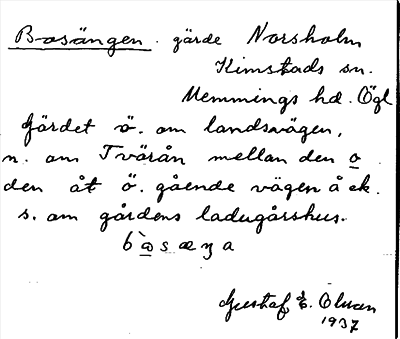 Basängen. gärde Norsholm
Kimstads sn.
Memmings hd. Ögl
Gärdet ö. om landsvägen,
n. om Tvärån mellan den o
den åt ö. gående vägen å ek.
s. om gårdens ladugårshus.
Gustaf E. Olsson
1937